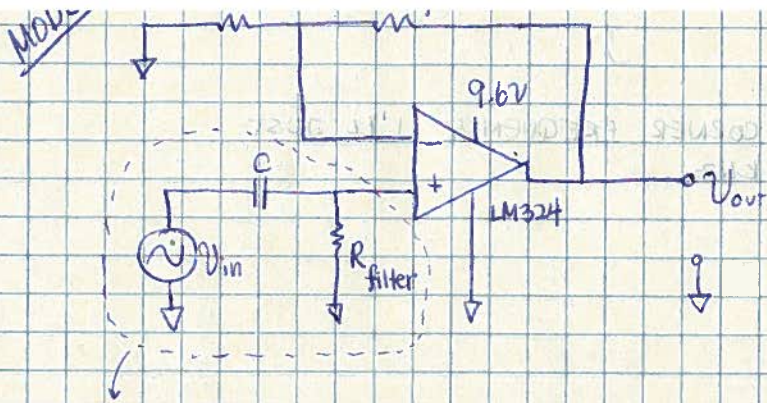 9.6V
C
−
+
LM324
Vout
Vin
R
filter